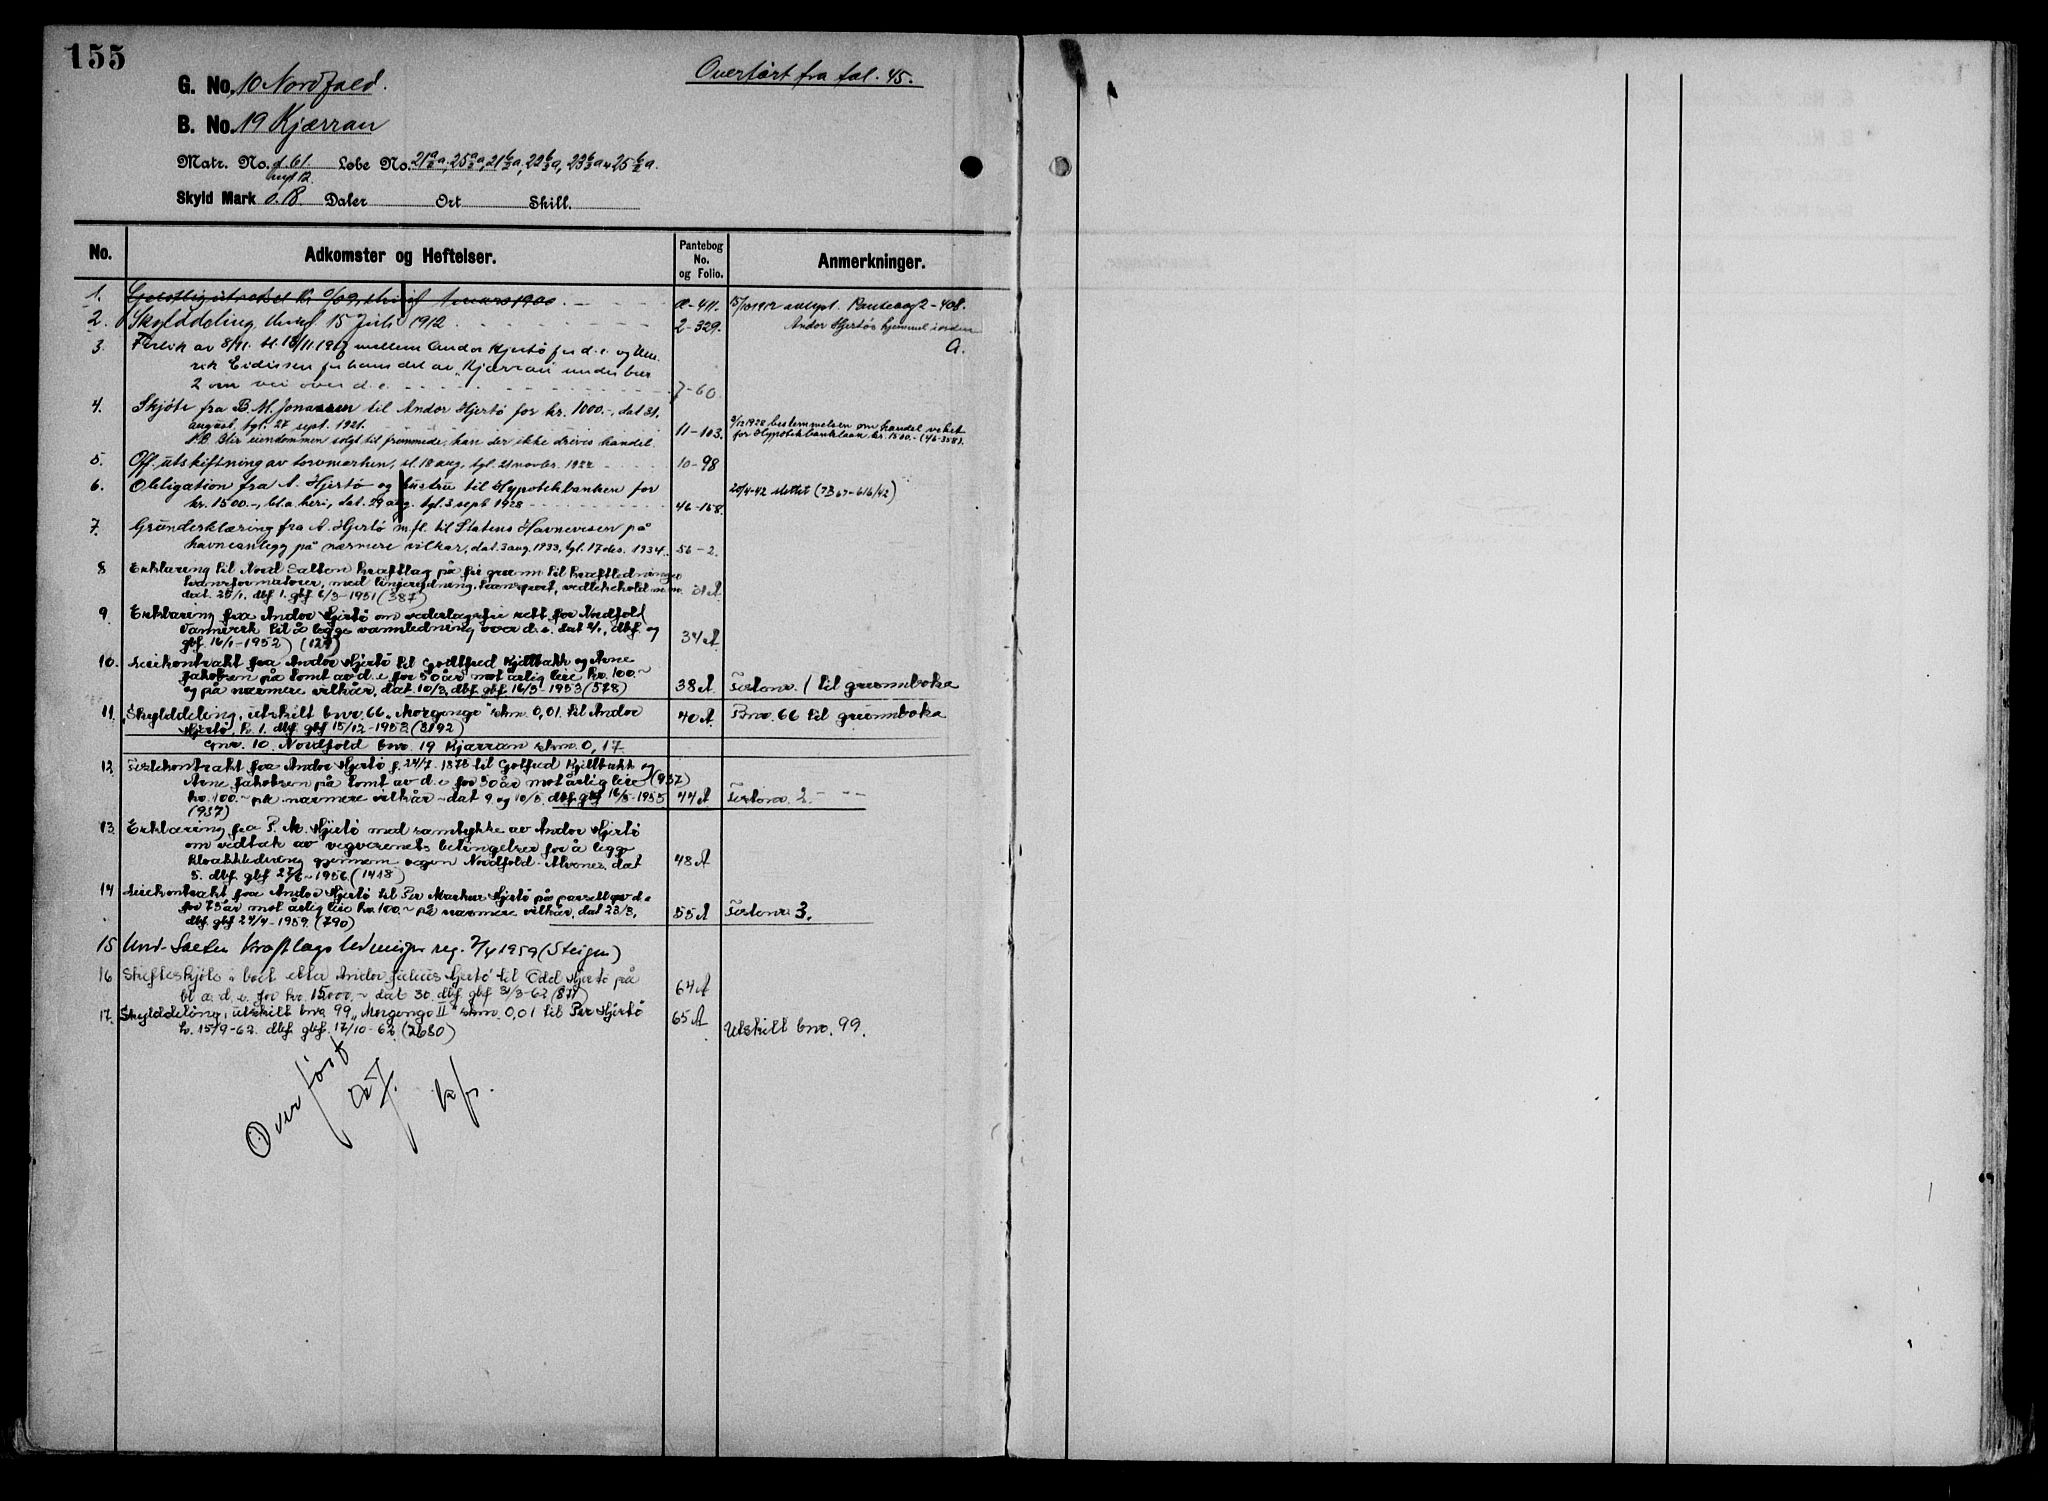 155
Overført fra fol. 45.
G. No. 10 Nordfold.
B. No. 19 Kjærran
Matr. No. 61. Løbe No. 21 a, 25 a, 21 a, 22 a, 23 a, 25 a.
Skyld Mark 0.18 Daler Ort Skill.
No. Adkomster og Heftelser. Pantebog No. og Folio. Anmerkninger.
1. 1900. 411. 15/10 1912 Pantebog 2-408.
2. Skylddeling, 15 Juli 1912. 2-329. Andor Hjertøs hjemmel
3. Forlik av 8/11. 15/11. mellem Andor Hjertø for d.e. og
Eidissen for hans del av "Kjærran" under bnr
2 om vei over d.e. 7-60.
4. Skjøte fra B. M. Jonassen til Andor Hjertø for kr. 1000.-, dat 31.
august, tgl. 27 sept. 1921. 11-103. bestemmelsen om handel veket
NB Blir eiendommen solgt til fremmede, kan der ikke drives handel. for Hypotekbanklaan kr. 1500.- (46-358).
5. Off. utskiftning av torvmarken, sl. 18 aug, tgl. 21 novbr. 1922 10-98
6. Obligation fra A. Hjertø og hustru til Hypotekbanken for 20/4-42 slettet (DB 67-616/42)
kr. 1500.-, bl. a. heri, dat. 29 aug. tgl. 3 sept 1928 46-158.
7. Grunderklæring fra A. Hjertø m.fl. til Statens Havnevesen på
havneanlegg på nærmere vilkår, dat. 3 aug. 1933, tgl. 17 des. 1934. 56-2.
8 Erklæring til Nord Salten kraftlag på fri grunn til kraftledninger
transformatorer, med linjerydning, transport, vedlikehold m.m. 31 A
dat. 25/1. dbf 1. gbf 6/3-1951 (387)
9 Erklæring fra Andor Hjertø om vederlagsfri rett for Nordfold
Vannverk til å legge vannledning over d.e. dat dbf. og 34 A
gbf 16/1-1952) (127)
10. Leiekontrakt fra Andor Hjertø til Godtfred Kjellbakk og Arne
Jakobsen på tomt av d.e for 50 år mot årlig leie kr. 100.-
og på nærmere vilkår, dat 10/3, dbf. gbf 16/3-1953 (578) 38 A Festenr. 1 til grunnboka
11. Skylddeling, utskilt bnr. 66 "Morgengo" skm. 0,01 til Andor 40 A Bnr. 66 til grunnboka
Hjertø, h. 1. dbf. gbf 15/12-1953 (3192)
Gnr. 10. Nordfold bnr. 19 Kjærran skm. 0,17.
12. Festekontrakt fra Andor Hjertø f. 24/7. 1875 til Gotfred Kjellbakk og
Arne Jakobsen på tomt av d.e for 50 år mot årlig leie (937)
kr. 100.- på nærmere vilkår - dat 9. og 10/5. dbf. gbf 16/5-1955 44 A Festenr. 2. - " -
(937)
13. Erklæring fra P. M. Hjertø med samtykke av Andor Hjertø
om vedtak av vegvesenets betingelser for å legge
kloakkledning gjennom vegen Nordfold - Alvenes, dat 48 A
5. dbf. gbf 27/6-1956. (1418)
14 Leiekontrakt fra Andor Hjertø til Per Markus Hjertø på parsell av d.e
for 75 år mot årlig leie kr. 100.- på nærmere vilkår, dat 23/3, 55 A Festenr. 3.
dbf. gbf 24/4-1959. (790)
15 Nord-Salten Kraftlags ledninger reg. 7/4 1959 (Steigen)
16 Skifteskjøte i boet etter Andor Julius Hjertø til Odd Hjertø på 64 A
bl. a. d.e. for kr. 15.000.- dat 30. dbf. gbf 31/3-62 (871)
17. Skylddeling, utskilt bnr. 99 "Morgengo II" skm. 0,01 til Per Hjertø 65 A
h. 15/9-62. dbf. gbf. 17/10-62 (2680) Utskilt bnr. 99.
Overført